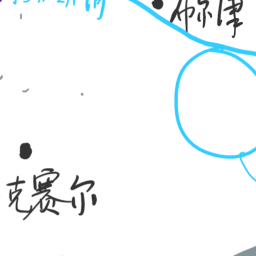 河
布尔津
克赛尔